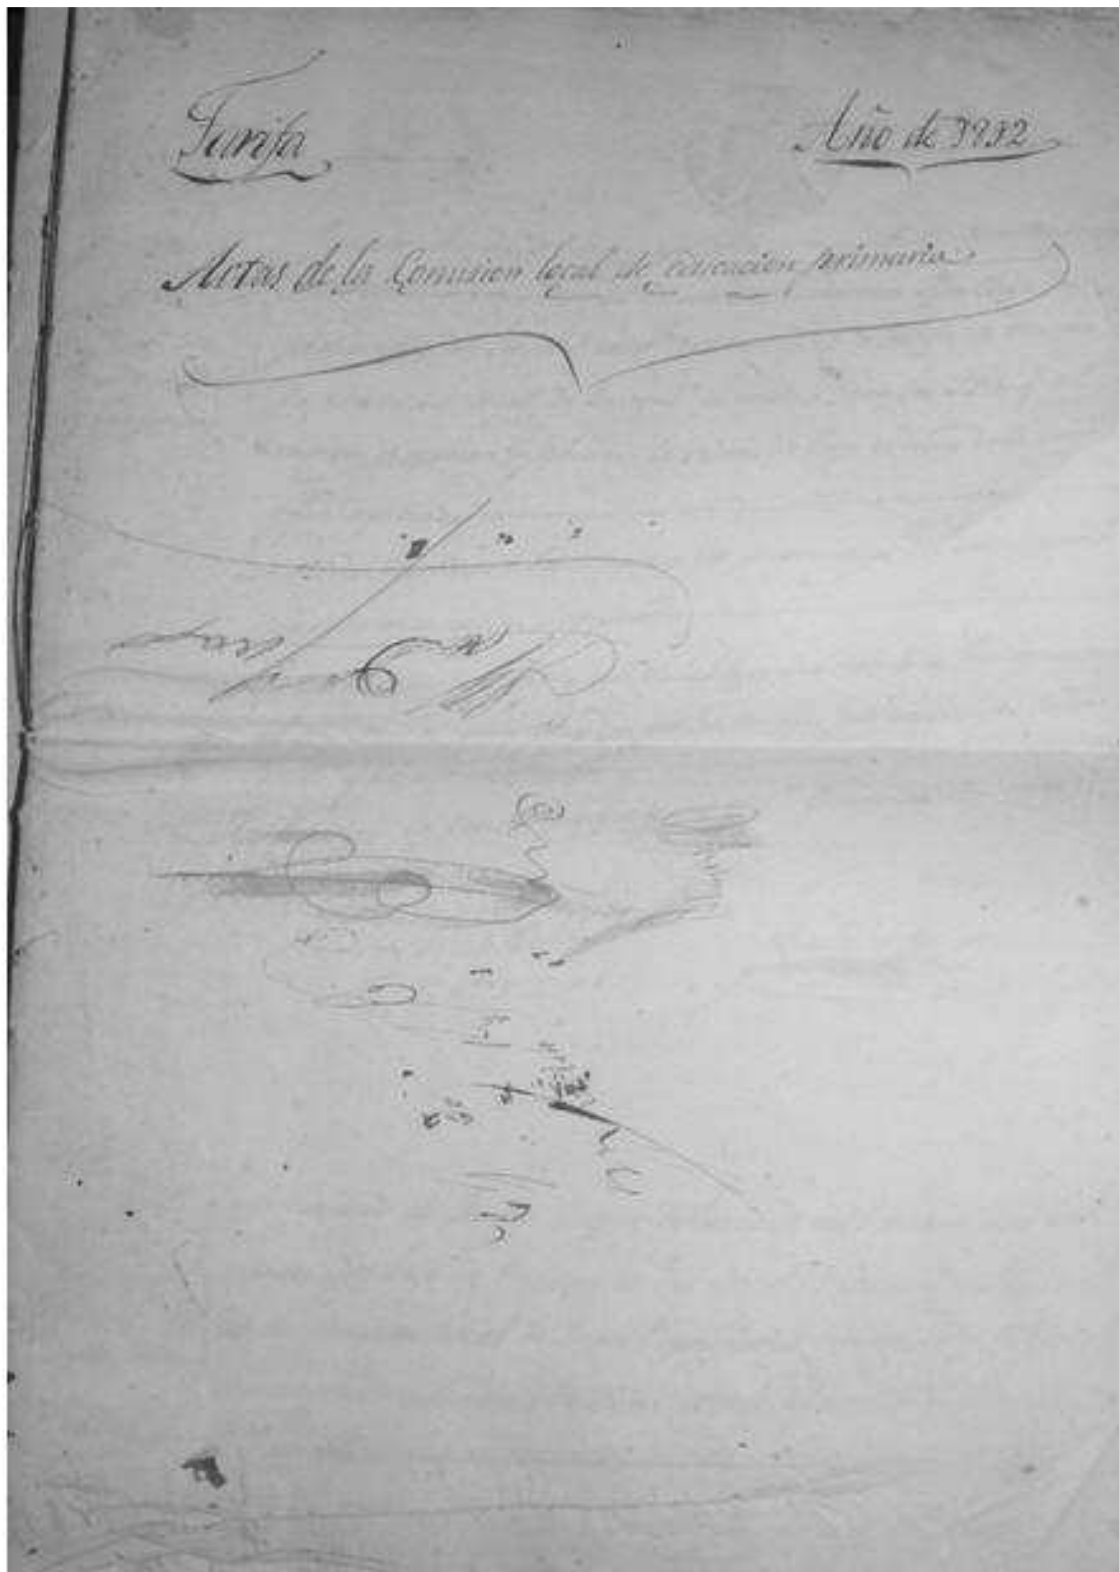 Tarifa
Año de
Actas de la Comision local de educacion primaria